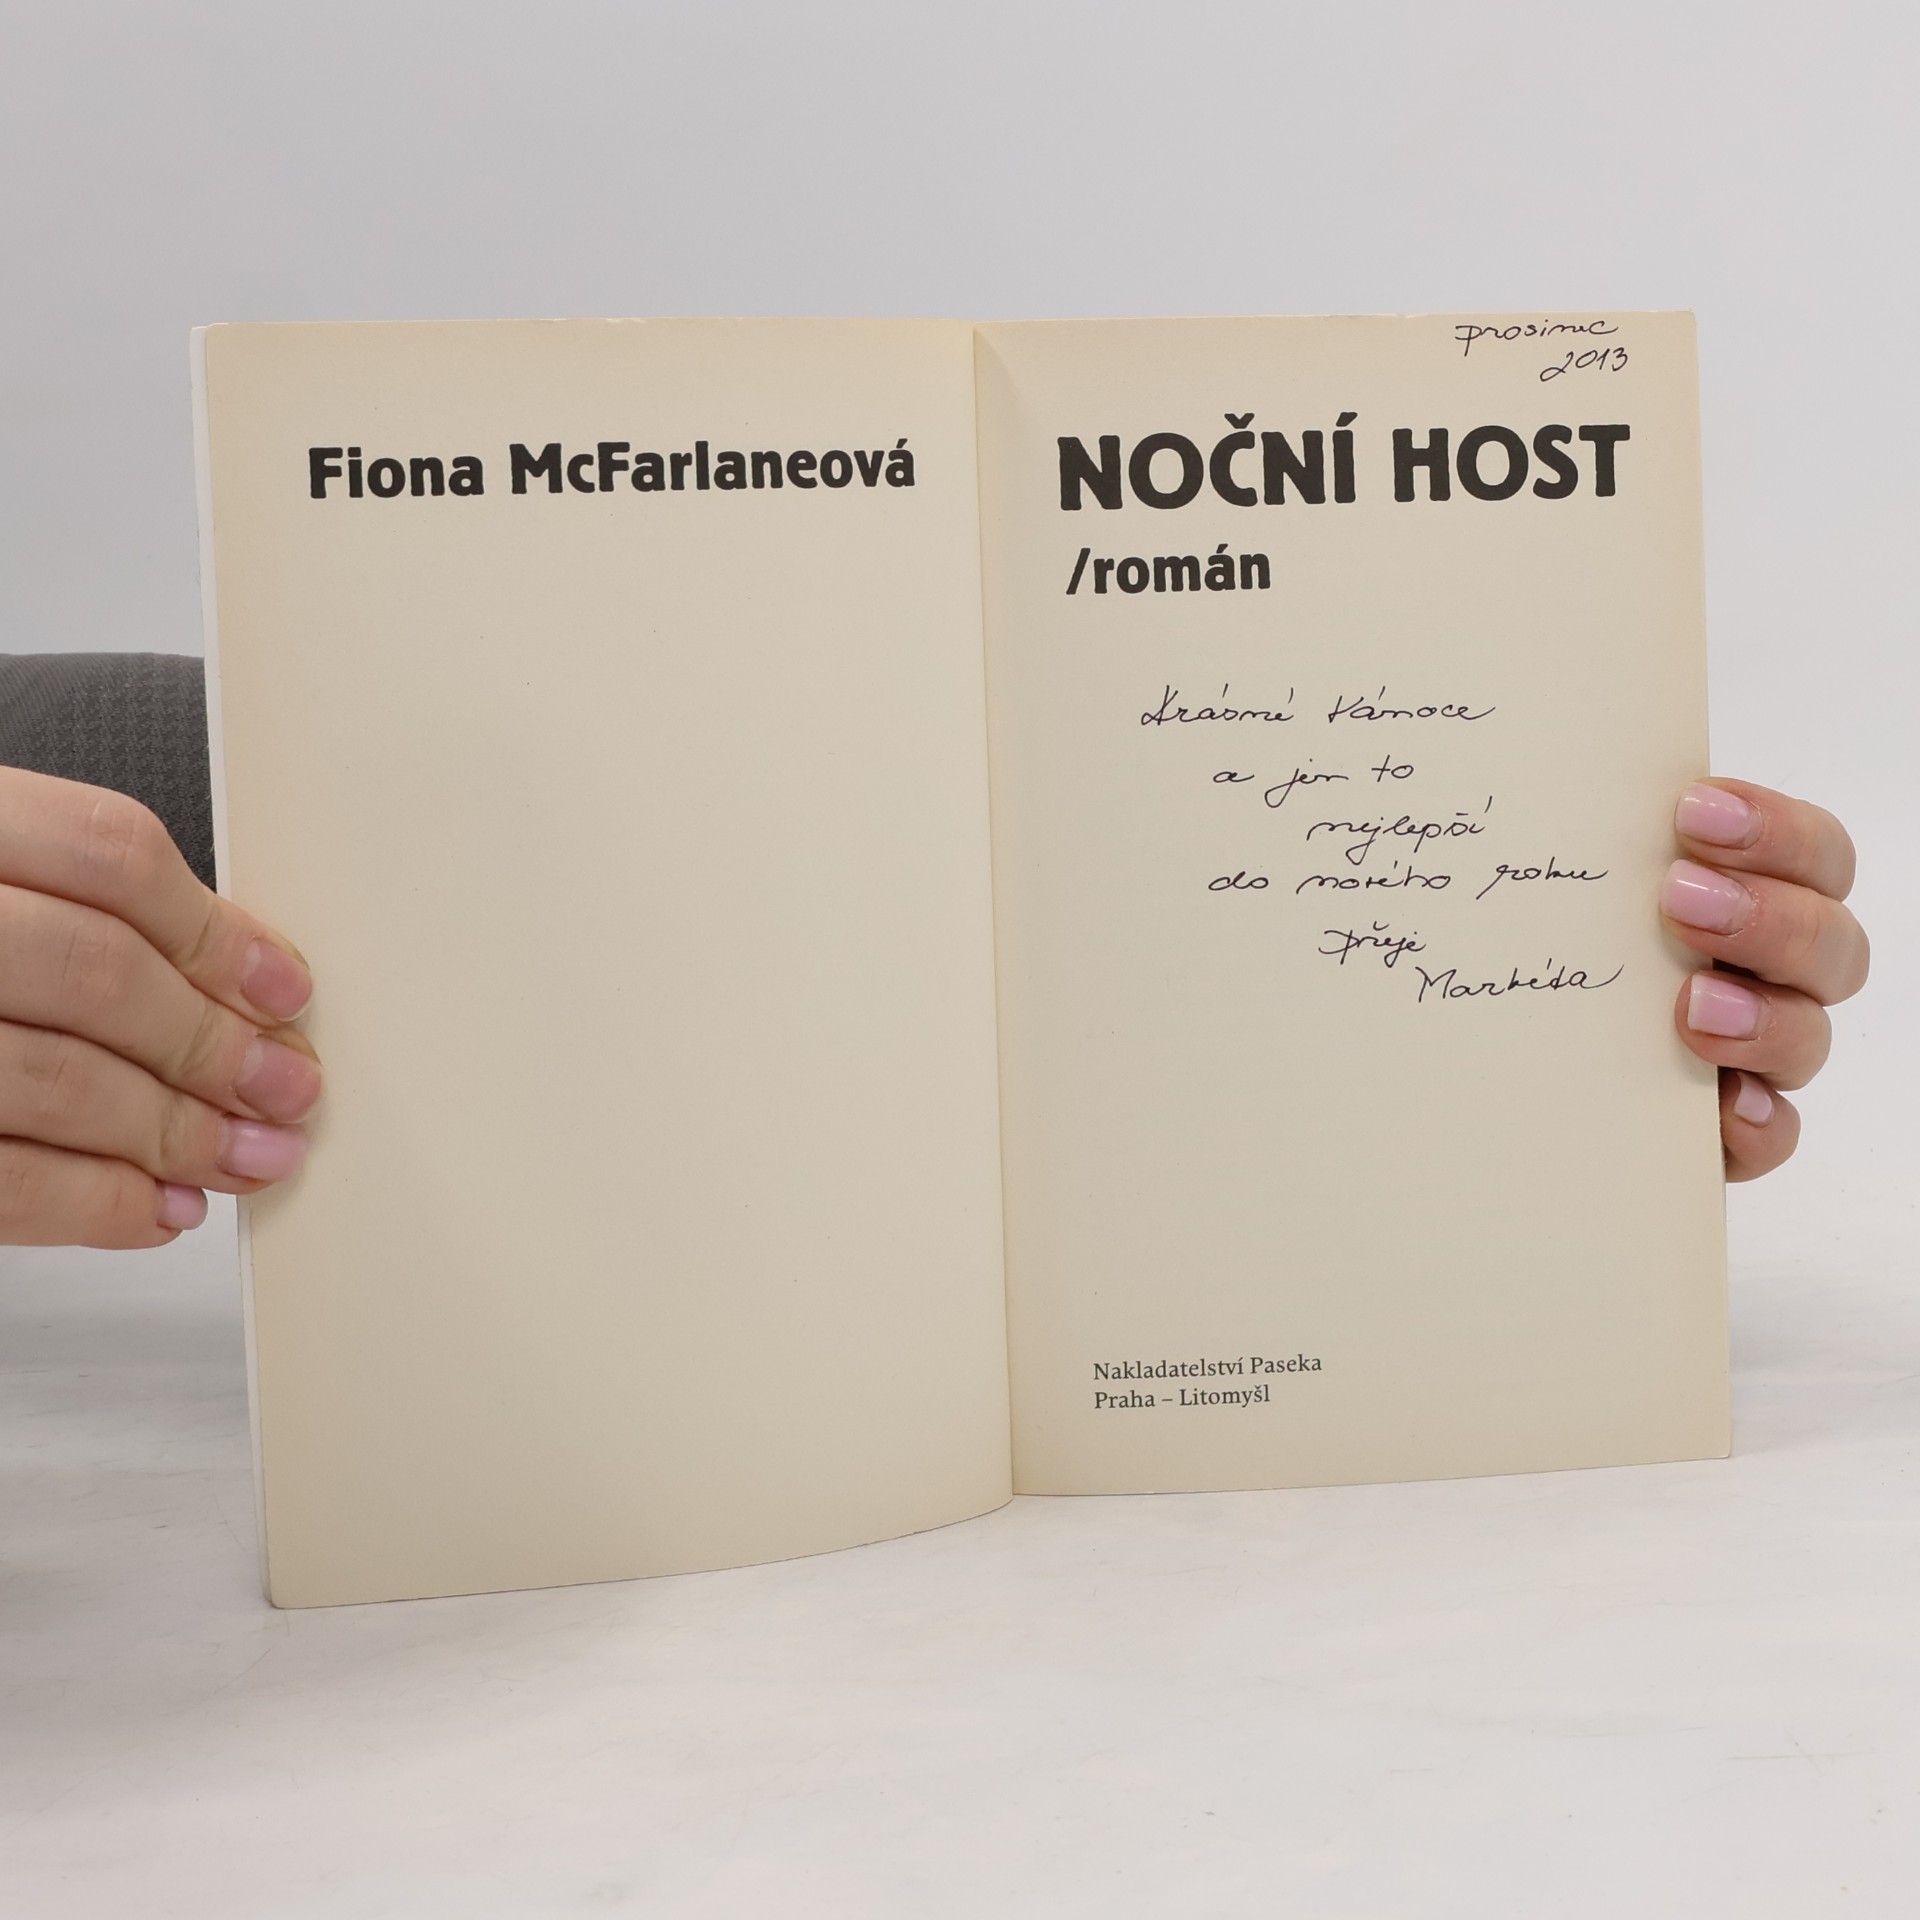 Fiona McFarlaneová
prosinec
2013
NOČNÍ HOST
/román
Krásné Vánoce
a jen to
nejlepší
do nového roku
přeje
Markéta
Nakladatelství Paseka
Praha – Litomyšl